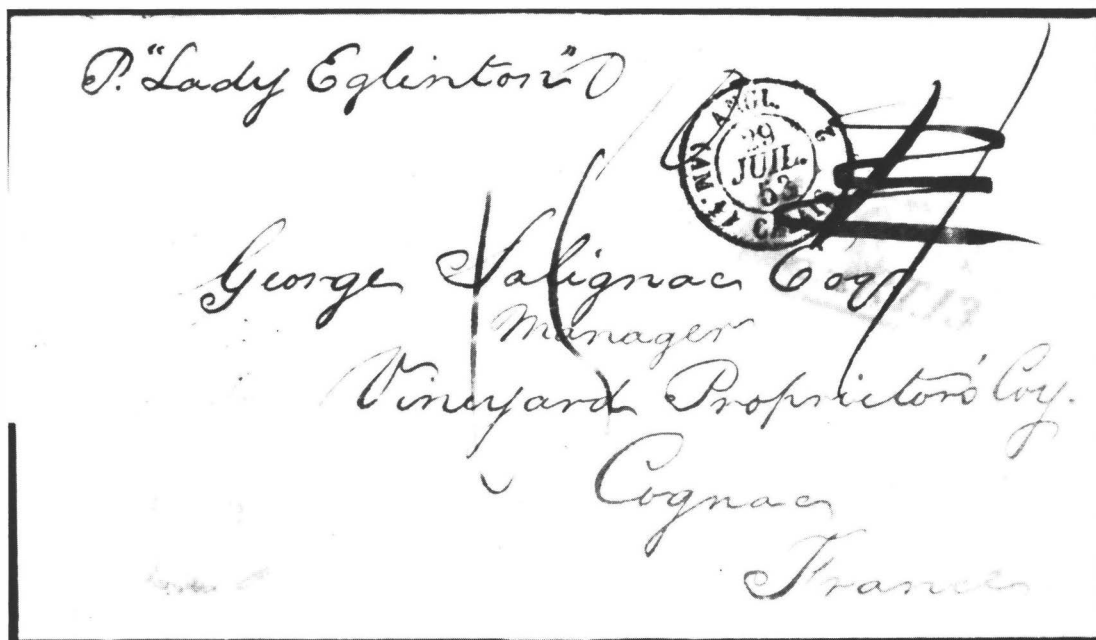 P. "Lady Eglinton"
ANGL. 2
29
JUIL.
53
CALAIS
George Salignac Esqr
Manager
Vineyard Proprietors' Coy.
Cognac
France